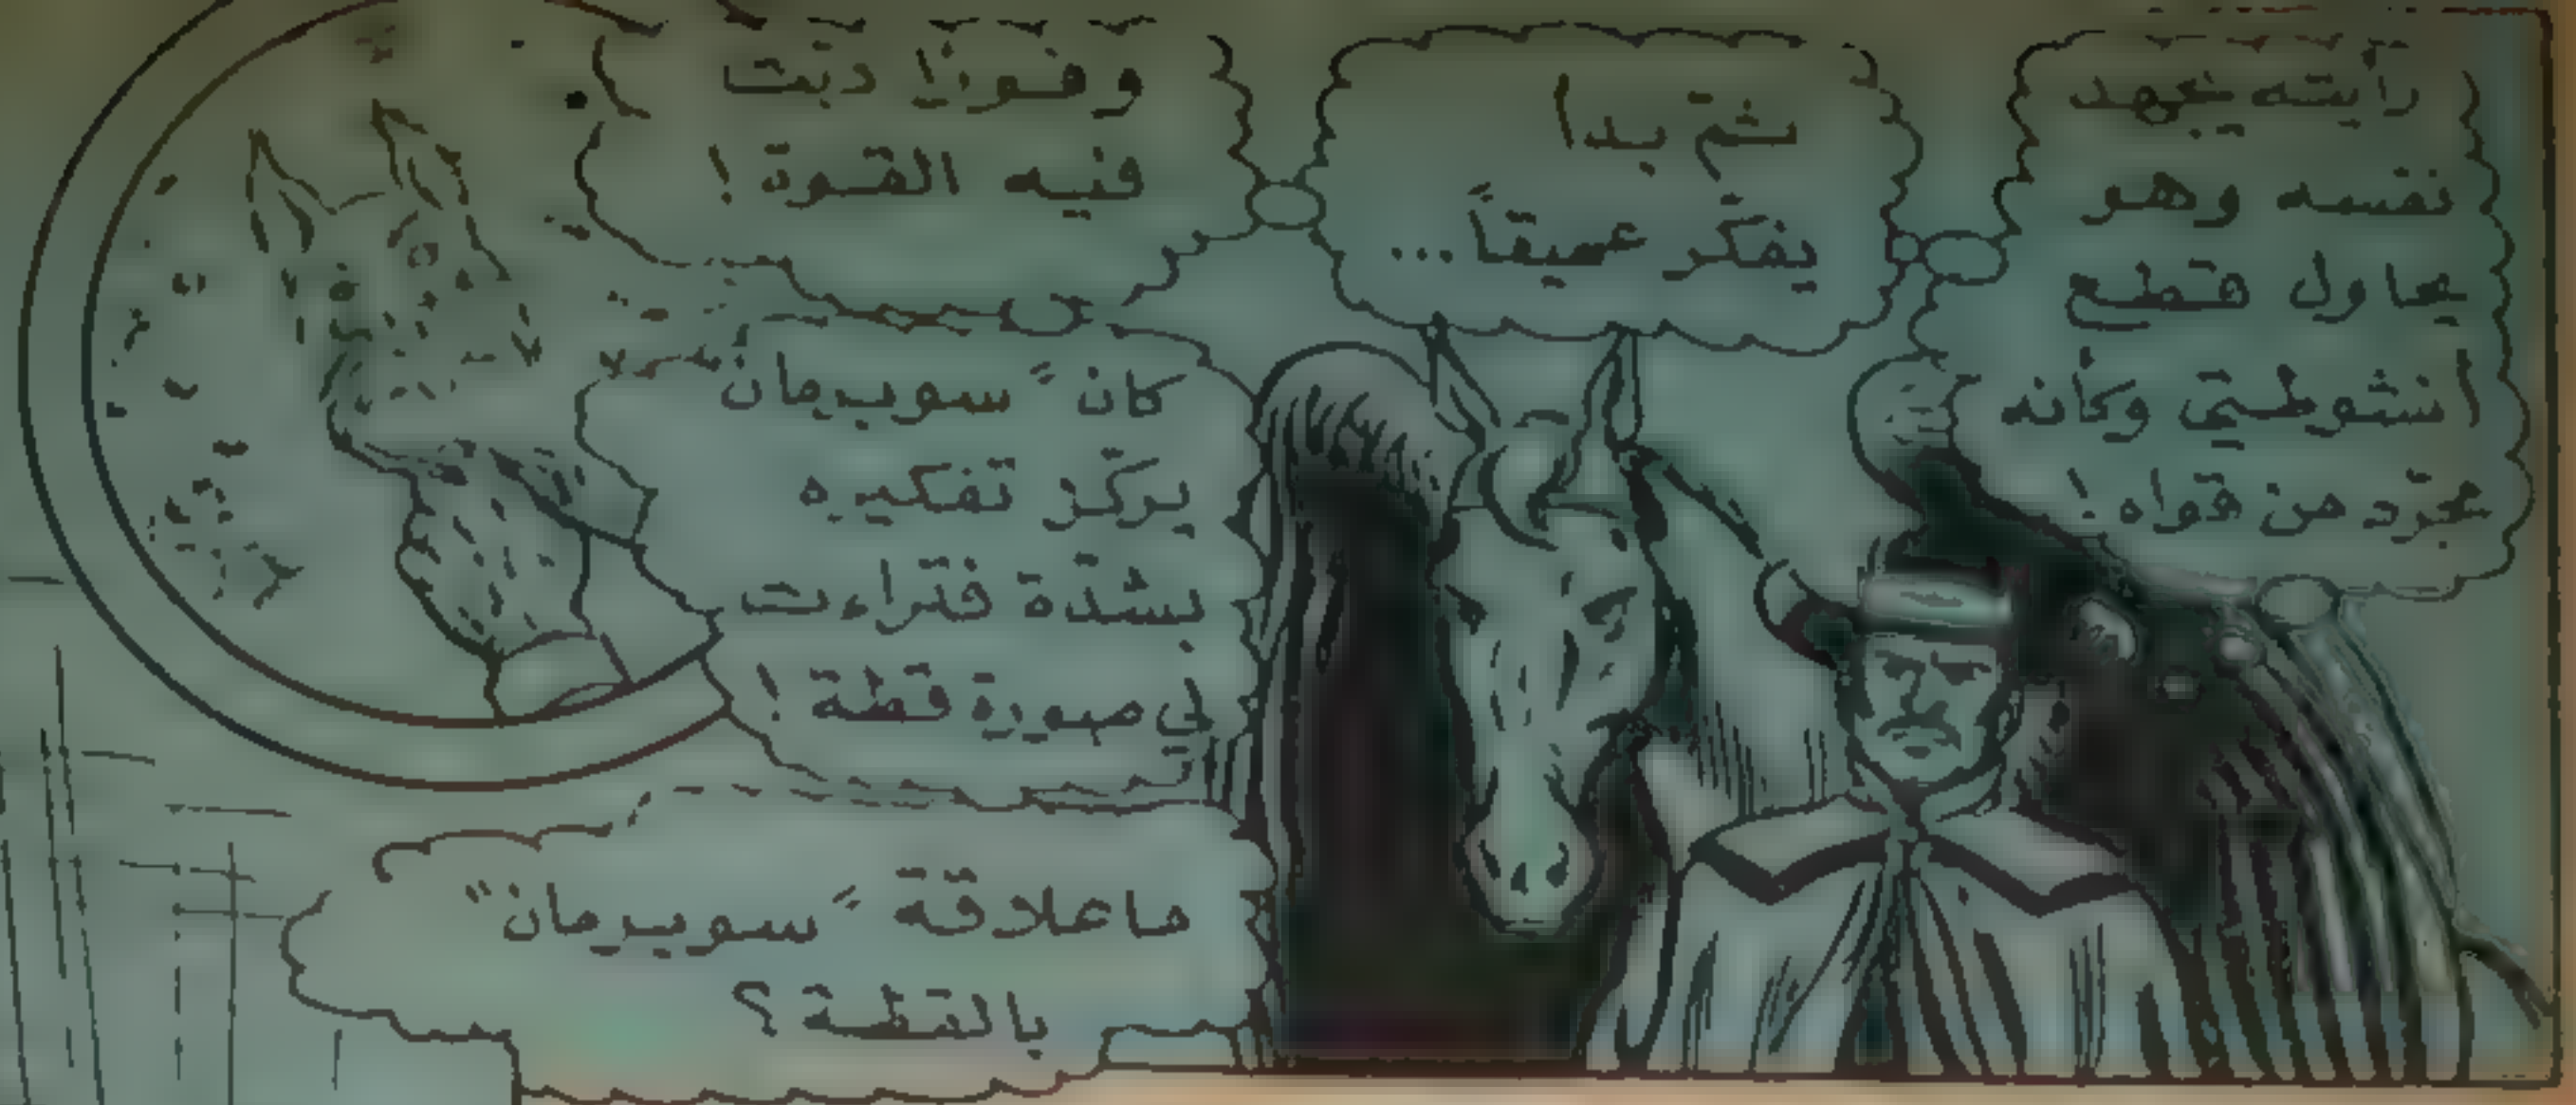 رأيته يجهد
نفسه وهو
يحاول قطع
انشوطتي وكأنه
مجرّد من قواه!
ثمّ بدا
يفكّر عميقاً...
وفوراً دبّت
فيه القوة!
كان "سوبرمان
يركّز تفكيره
بشدّة فتراءت
لي صورة قطة!
ما علاقة "سوبرمان"
بالقطة؟